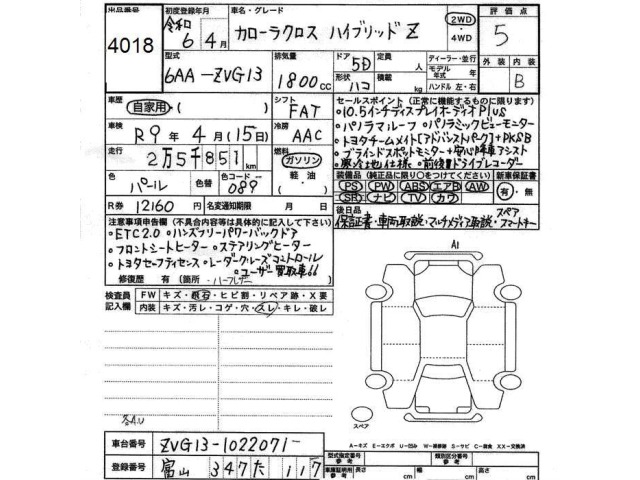 出品番号 4018
初度登録年月 令和 6年 4月
車名・グレード カローラクロス ハイブリッドZ
2WD・4WD
評価点 5
型式 6AA-ZVG13
排気量 1800cc
ドア 5D
形状 ハコ
定員 人
積載 kg
ディーラー・並行
モデル年式 年
ハンドル 左・右
外装 内装 B
車歴 自家用・( )
シフト FAT
車検 R9年 4月(15日)
冷房 AAC
走行 2万5千851km
燃料 ガソリン 軽油 ・( )
色 パール 色替
色コード 089
R券 12160円 名変通知期限 月 日
セールスポイント(正常に機能するものに限ります)
○10.5インチディスプレイオーディオPlus
○パノラマルーフ ○パノラミックビューモニター
○トヨタチームメイト[アドバンストパーク]+PKSB
○ブラインドスポットモニター+安心降車アシスト
○寒冷地仕様 ○前後ドライブレコーダー
装備品(純正品に限り○をつけてください) 新車保証書
PS PW ABS エアB AW
SR ナビ TV カワ
有・無
後日品 保証書・車両取説・マルチメディア取説・スペアスマートキー
注意事項申告欄(不具合内容等は具体的に記入して下さい)
○ETC2.0 ○ハンズフリーパワーバックドア
○フロントシートヒーター ○ステアリングヒーター
○トヨタセーフティセンス ○レーダークルーズコントロール
○ユーザー買取車
修復歴 有(箇所
検査員記入欄
FW キズ・飛石・ヒビ割・リペア跡・X要
内装 キズ・汚レ・コゲ・穴・スレ・キレ・破レ
A1
スペア
A-キズ E-エクボ U-凹み W-補修跡 S-サビ C-腐食 XX-交換済
各A.U
車台番号 ZVG13-1022071
登録番号 富山 347 た 117
型式指定番号 参考
類別区分番号 参考
車庫証明用参考 長さ cm 幅 cm 高さ cm